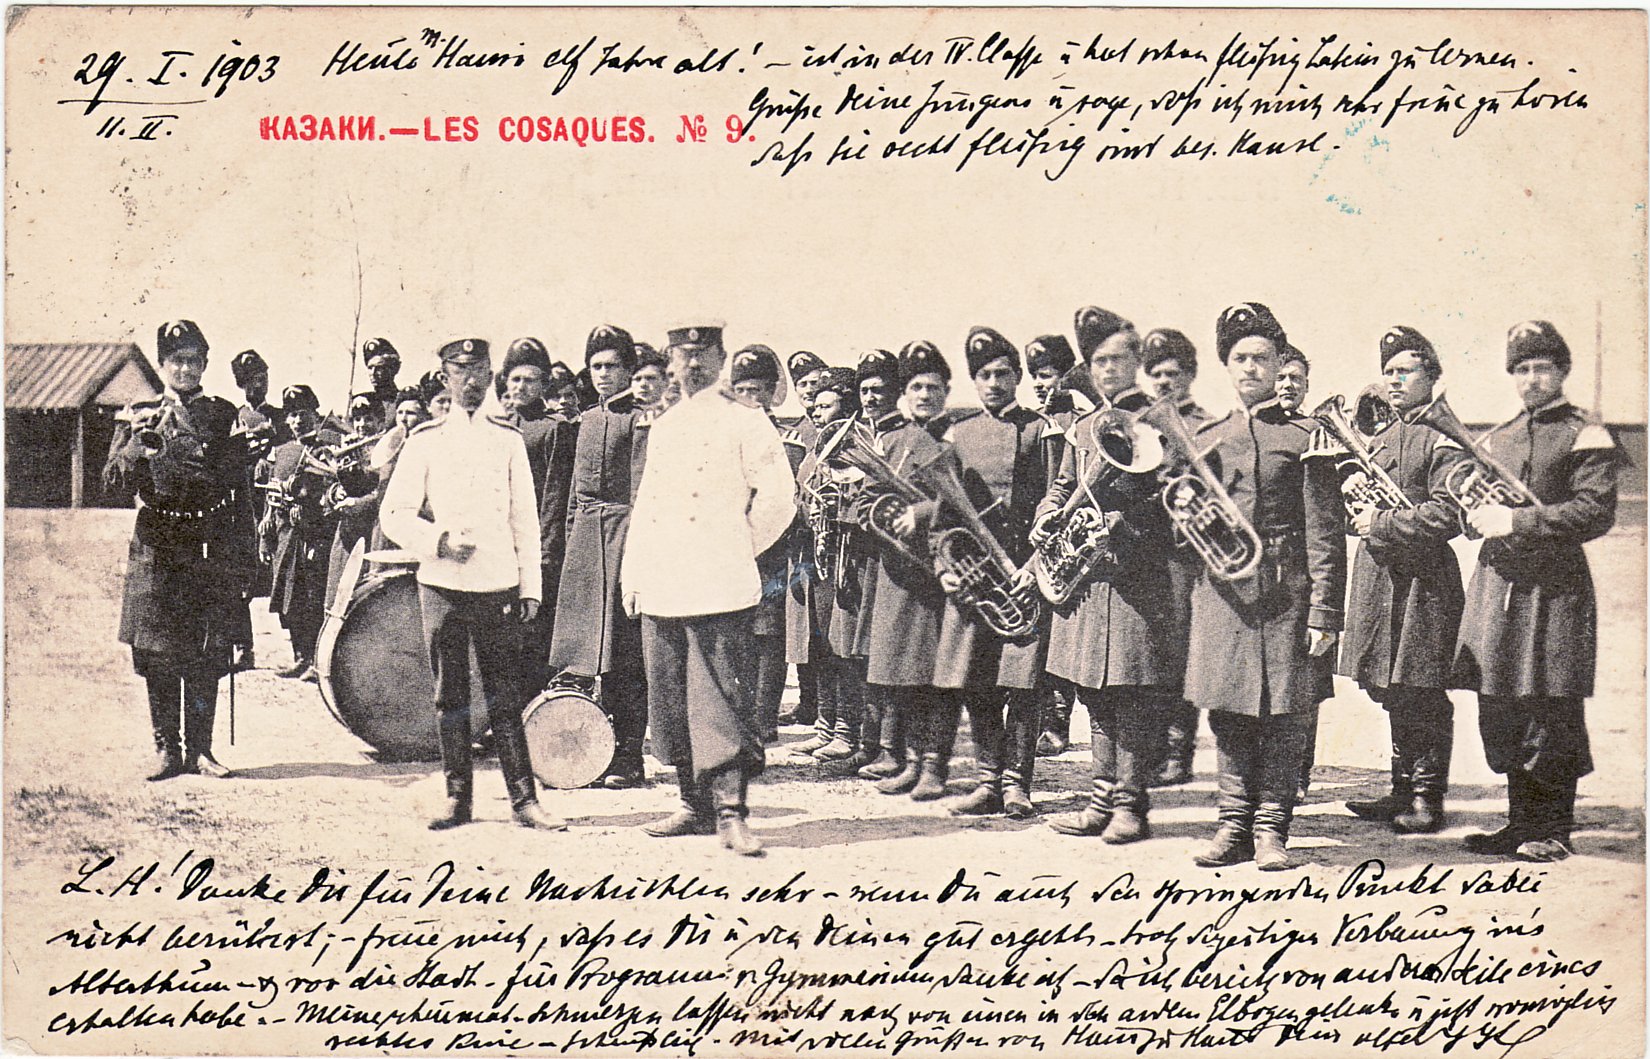 29. I. 1903
11. II.
Heute m. Hansi elf Jahre alt! – ist in der IV. Classe u hat schon fleißig Latein zu lernen.
Grüße Deine Jungens u sage, daß ich mich sehr freue zu hören
daß sie recht fleißig sind bes.
КАЗАКИ.—LES COSAQUES. № 9.
L. H.! Danke Dir für Deine Nachrichten sehr – wenn Du auch den springenden Punkt dabei
nicht berührst; – freue mich, daß es Dir u den Deinen gut ergeht – trotz Verbauung in's
Alterthum – vor die Stadt. – für Programm v Gymnasium danke ich – da ich bereits von anderer Seite eines
erhalten habe. – Meine rheumat. Schmerzen lassen nicht nach von einem in den andern Elbogengelenke u jetzt
rechtes Knie – scheußlich. – Mit vielen Grüßen von Haus zu Haus Dein alter